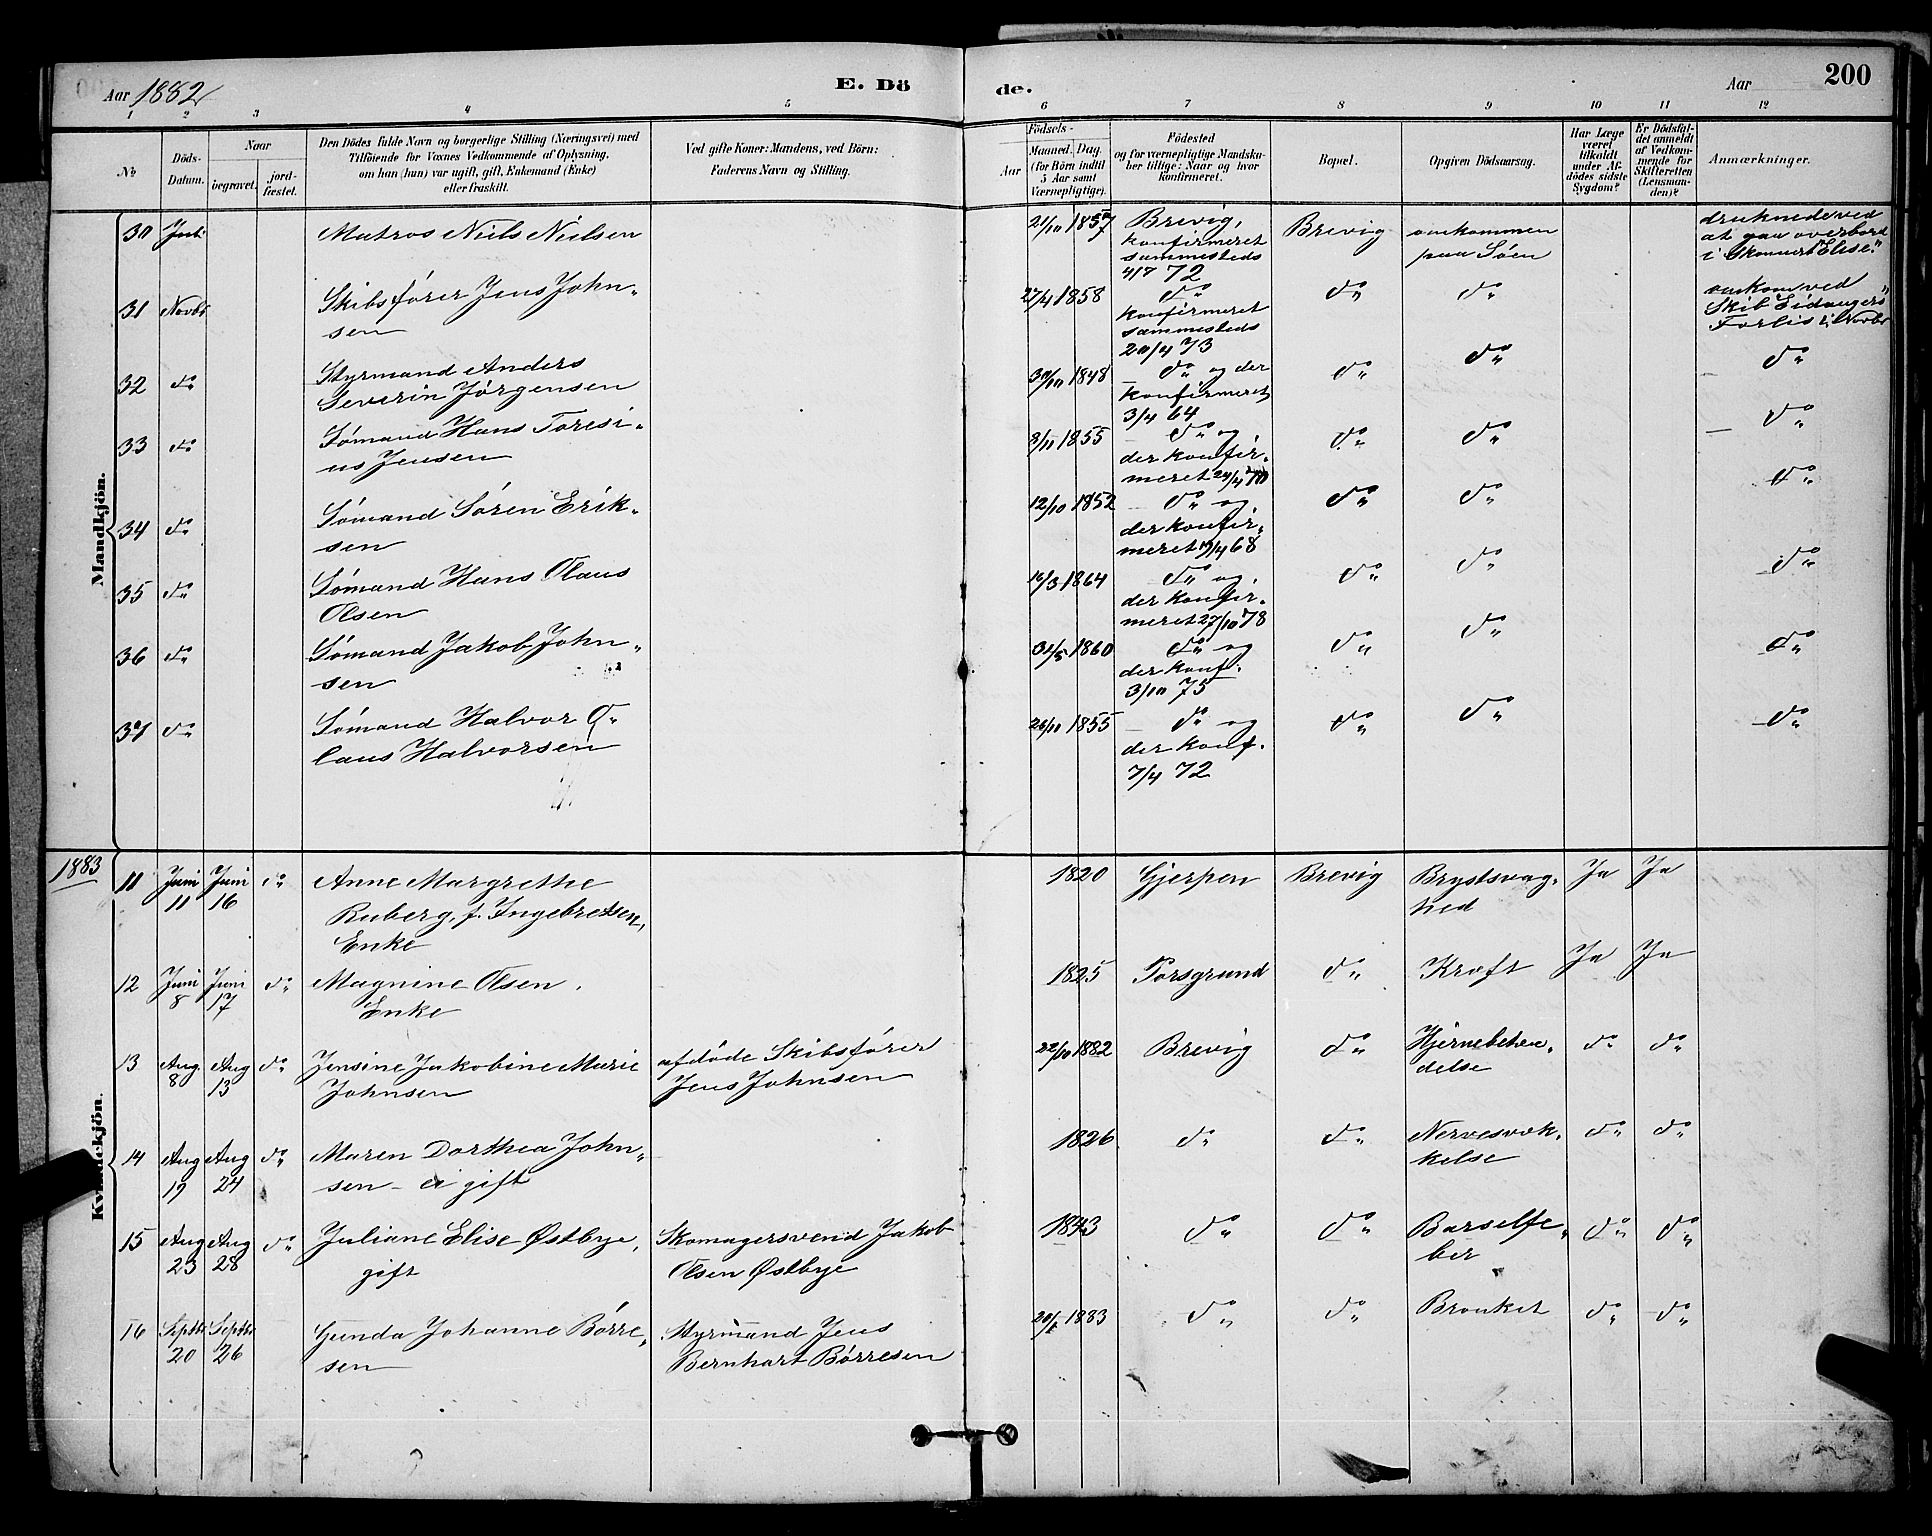 Aar 1882
E. Dö
de.
Aar
200
1 2 3 4 5 6 7 8 9 10 11 12
No
Döds-
Datum.
Naar
begravet.
jord-
fæstet.
Den Dödes fulde Navn og borgerlige Stilling (Næringsvei) med
Tilföiende for Voxnes Vedkommende af Oplysning,
om han (hun) var ugift, gift, Enkemand (Enke)
eller fraskilt.
Ved gifte Koner: Mandens, ved Börn:
Faderens Navn og Stilling.
Födsels-
Aar
Maaned. Dag.
(for Börn indtil
5 Aar samt
Værnepligtige).
Födested
og for værnepligtige Mandska-
ber tillige: Naar og hvor
konfirmeret.
Bopæl.
Opgiven Dödsaarsag.
Har Læge
været
tilkaldt
under Af-
dödes sidste
Sygdom?
Er Dödsfal-
det anmeldt
af Vedkom-
mende for
Skifteretten
(Lensman-
den)?
Anmærkninger.
Mandkjön.
30 Matros Niels Nielsen 21/10 1857 Brevig,
konfirmeret
sammesteds
4/7 72
Brevig
omkommen
paa Söen
druknede ved
at gaa overbord
i Skonnert "Elise".
31 Novbr Skibsfører Jens John-
sen
27/4 1858 do
konfirmeret
sammesteds
20/4 73
do do
omkom ved
Skib Eidangers
Forlis i Novbr
32 do Styrmand Anders
Severin Jørgensen
30/10 1848 do og der
konfirmeret
3/4 64
do do do
33 do Sömand Hans Toresi-
us Jensen
8/11 1855 do og
der konfir-
meret 24/4 70
do do do
34 do Sömand Sören Erik-
sen
12/10 1852 do og
der konfir-
meret 19/4 68
do do do
35 do Sömand Hans Olaus
Olsen
16/3 1864 do og
der konfir-
meret 27/10 78
do do do
36 do Sömand Jakob John-
sen
31/5 1860 do og
der konf.
3/10 75
do do do
37 do Sömand Halvor O-
laus Halvorsen
26/11 1855 do og
der konf.
7/4 72
do do do
1883
Kvindekjön.
11 Juni
11
Juni
16
do Anne Margrethe
Ruberg, f. Ingebretsen,
Enke
1820 Gjerpen Brevig Brystsvag-
hed
Ja Ja
12 Juni
8
Juni
17
do Magnine Olsen,
Enke
1825 Porsgrund do Kræft Ja Ja
13 Aug
8
Aug
13
do Jensine Jakobine Marie
Johnsen
afdöde Skibsförer
Jens Johnsen
22/10 1882 Brevig do Hjernebetæn-
delse
do do
14 Aug
19
Aug
24
do Maren Dorthea John-
sen - ei gift
1826 do do Nervesvæk-
kelse
do do
15 Aug
23
Aug
28
do Juliane Elise Østbye,
gift
Skomagersvend Jakob
Olsen Østbye
1843 do do Barselfe-
ber
do do
16 Septbr
20
Septbr
26
Gunda Johanne Börre-
sen
Styrmand Jens
Bernhart Börresen
1883 do do Bronkit do do